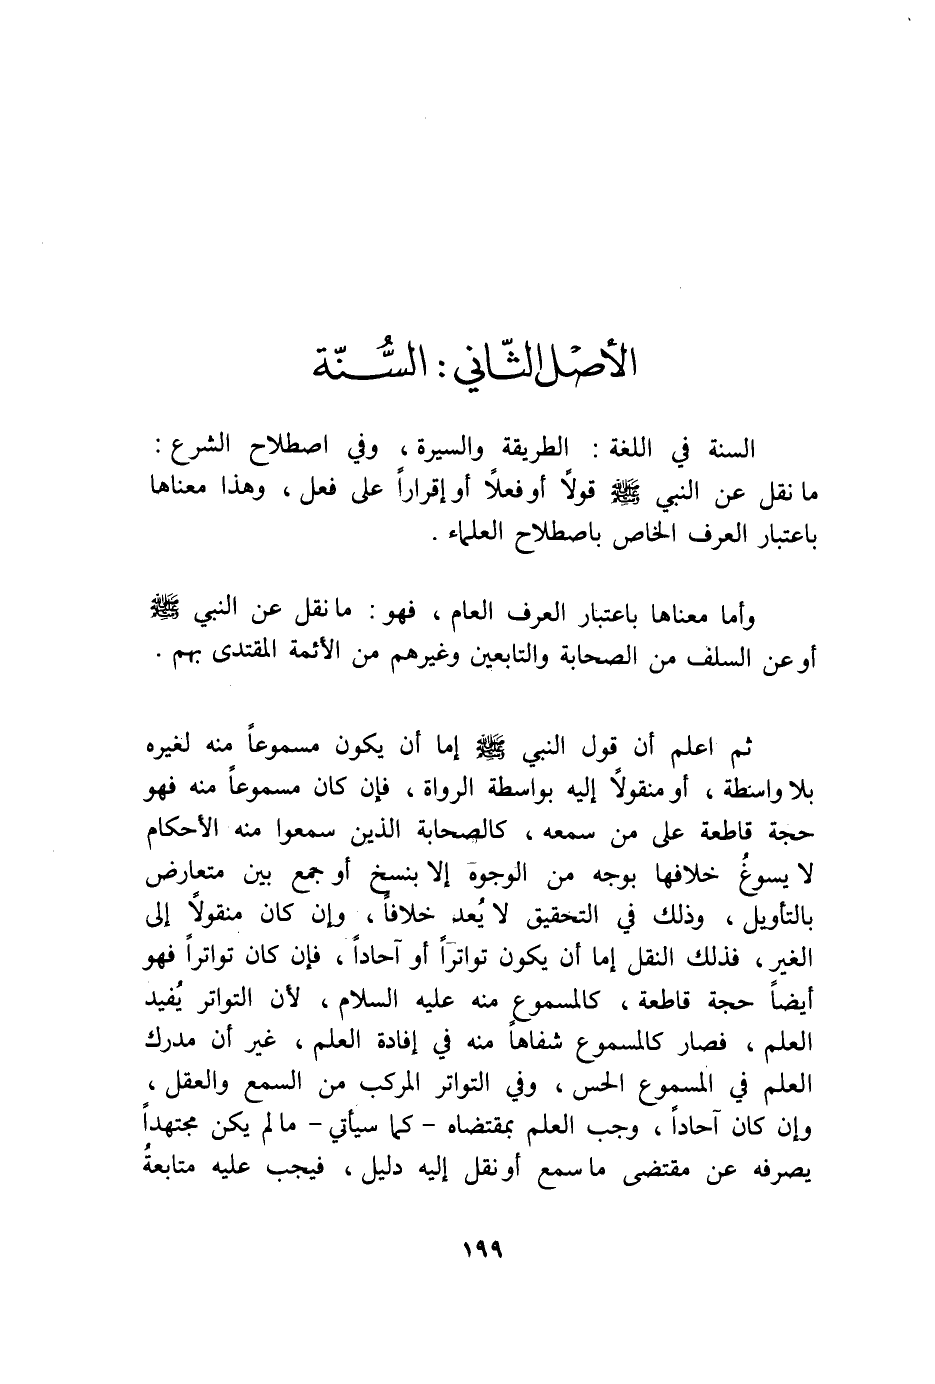 الأصل الثّاني : السُّنّة
السنة في اللغة : الطريقة والسيرة ، وفي اصطلاح الشرع :
ما نقل عن النبي ﷺ قولاً أو فعلاً أو إقراراً على فعل ، وهذا معناها
باعتبار العرف الخاص باصطلاح العلماء .
وأما معناها باعتبار العرف العام ، فهو : ما نقل عن النبي ﷺ
أو عن السلف من الصحابة والتابعين وغيرهم من الأئمة المقتدى بهم .
ثم اعلم أن قول النبي ﷺ إما أن يكون مسموعاً منه لغيره
بلا واسطة ، أو منقولاً إليه بواسطة الرواة ، فإن كان مسموعاً منه فهو
حجة قاطعة على من سمعه ، كالصحابة الذين سمعوا منه الأحكام
لا يسوغُ خلافها بوجه من الوجوه إلا بنسخ أو جمع بين متعارض
بالتأويل ، وذلك في التحقيق لا يُعد خلافاً ، وإن كان منقولاً إلى
الغير ، فذلك النقل إما أن يكون تواتراً أو آحاداً ، فإن كان تواتراً فهو
أيضاً حجة قاطعة ، كالمسموع منه عليه السلام ، لأن التواتر يُفيد
العلم ، فصار كالمسموع شفاهاً منه في إفادة العلم ، غير أن مدرك
العلم في المسموع الحس ، وفي التواتر المركب من السمع والعقل ،
وإن كان آحاداً ، وجب العلم بمقتضاه - كما سيأتي - ما لم يكن مجتهداً
يصرفه عن مقتضى ما سمع أو نقل إليه دليل ، فيجب عليه متابعةُ
١٩٩